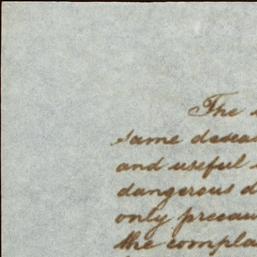 The
same desea
and useful
dangerous d
only precau
the compla